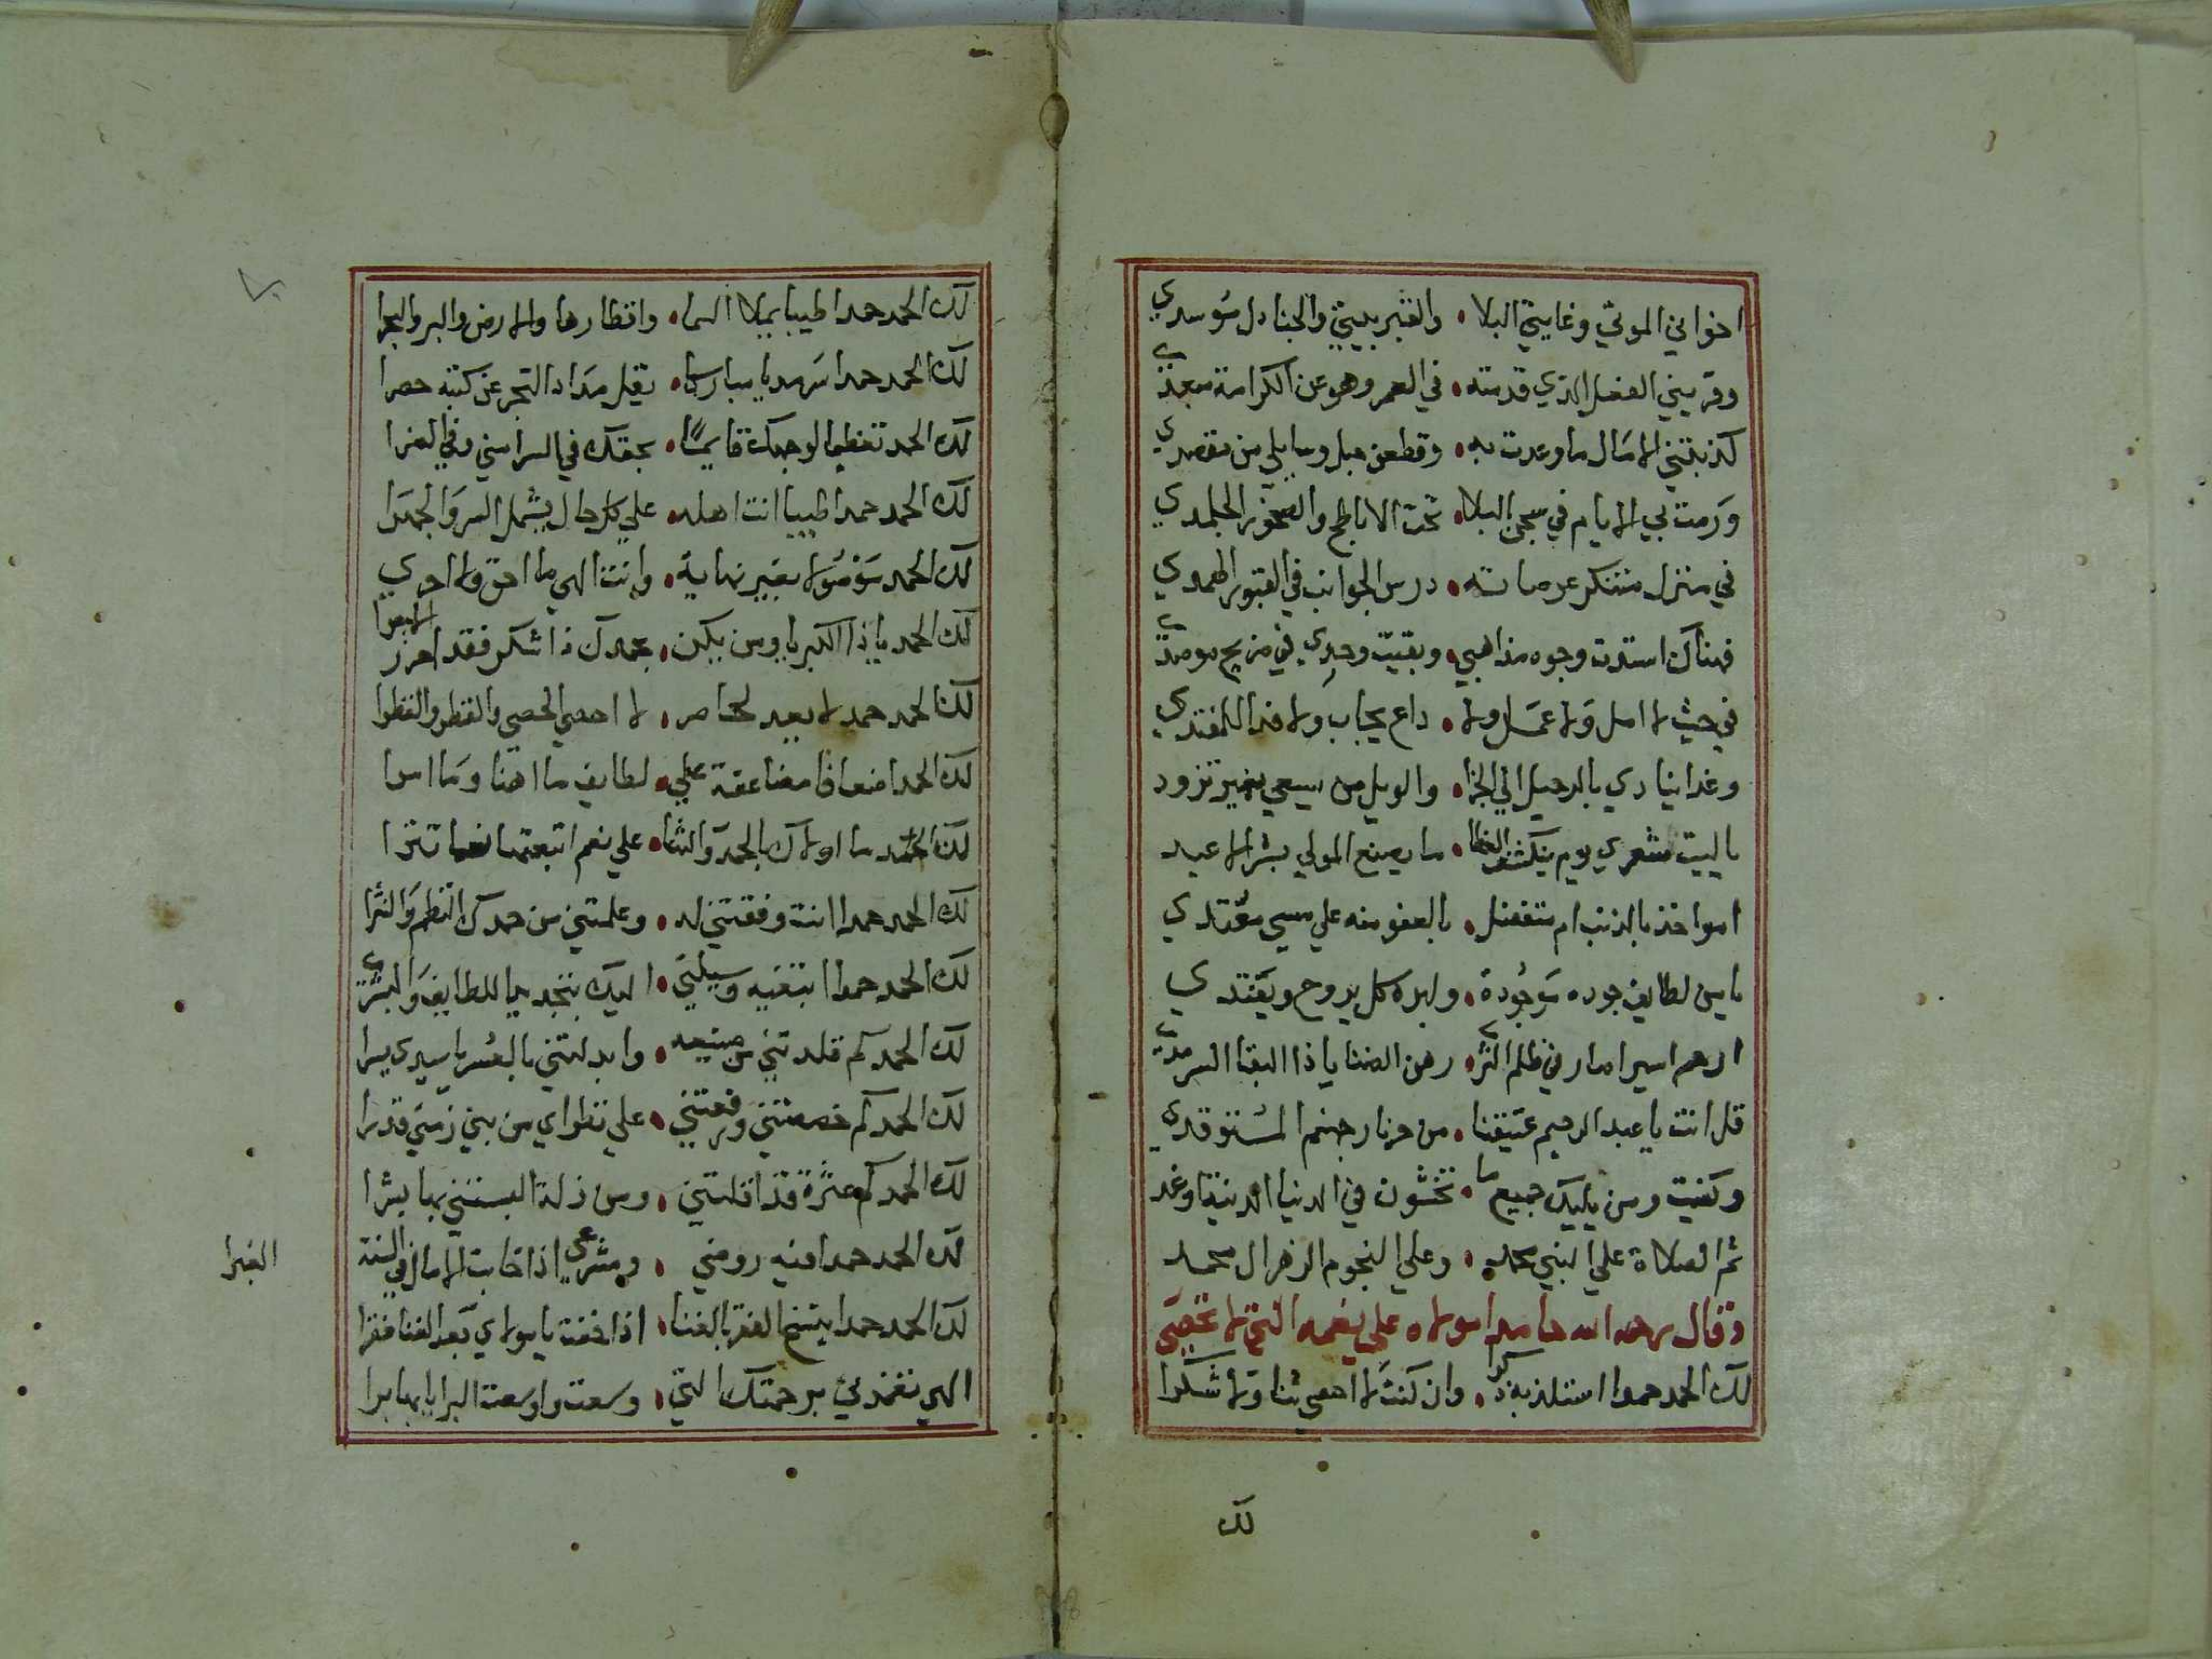 اخواني الموتي وغايتي البلا • والقبر بيتي والجنادل موسدي
وقريني الفضل الذي قدمته • في العمر وهو عن الكرامة مبعدي
كذبتني الامال ما وعدت به • وقطعن حبل وسايلي من مقصدي
ورمت بي الايام في سجن البلا • تحت الاباطح والصخور الجلمدي
في منزل متنكر عرصاته • درس الجوانب في القبور الهمدي
فهناك استدت وجوه مذاهبي • وبقيت وحدي في ضريح موصدي
في حيث لا امل ولا عمل ولا • داع يجاب ولا فدا للمفتدي
وغدا ينادي بالرحيل الي الجزا • والويل من يسعي بغير تزود
ياليت شعري يوم ينكشف الغطا • ما يصنع المولي بشر الاعبد
امواخذ بالذنب ام متفضل • بالعفو منه علي مسي معتدي
يا من لطايف جوده موجودة • ولبره كل يروح ويغتدي
ارحم اسيرا صار في ظلم الثري • رهن الضنا يا ذا البقا السرمدي
قل انت يا عبد الرحيم عتيقنا • من حر نار جهنم المستوقدي
وكفيت ومن يليك جميع ما • تخشون في الدنيا الدنية وغد
ثم الصلاة علي النبي محمد • وعلي النجوم الزهر ال محمد
وقال رحمه الله حامدا مولاه علي نعمه التي لا تحصي
لك الحمد حمدا استلذ به ذكرا • وان كنت لا احصي ثنا ولا شكرا
لك
لك الحمد حمدا طيبا يملا السما • واقطارها والارض والبر والبحرا
لك الحمد حمدا سرمديا مباركا • يقل مداد البحر عن كتبه حصرا
لك الحمد تعظيما لوجهك قايما • بحقك في السرا مني وفي الضرا
لك الحمد حمدا طيبا انت اهله • علي كل حال يشمل السر والجهرا
لك الحمد موصولا بغير نهاية • وانت الهي ما احق ولا احري
لك الحمد ياذا الكبريا ومن يكن • بحمدك ذا شكر فقد احرز الاجرا
لك الحمد حمد لا يعد لحاصر • لا احصي الحصي والقطر والقطرا
لك الحمد اضعافا مضاعفة علي • لطايف ما اهنا وما امرا
لك الحمد ما اولاك بالحمد والثنا • علي نعم اتبعتها نعما تترا
لك الحمد حمدا انت وفقتني له • وعلمتني من حمدك النظم والنثرا
لك الحمد حمدا ابتغيه وسيلتي • اليك بتجديد اللطايف والبشري
لك الحمد كم قلدتني من صنيعه • وابدلتني بالعسر يا سيدي يسرا
لك الحمد كم خصصتني ورفعتني • علي نظراي من بني زمني قدرا
لك الحمد كم عثرة قد اقلتني • ومن زلة البستني بها بشرا
لك الحمد حمدا فيه رومني • ومشرعي اذا خابت الامال في السنة
الغبرا
لك الحمد حمدا ينسخ الفقر بالغنا • اذا خفت يا مولاي بعد الغنا فقرا
الهي تغمدني برحمتك التي • وسعت واوسعت البرايا بها برا